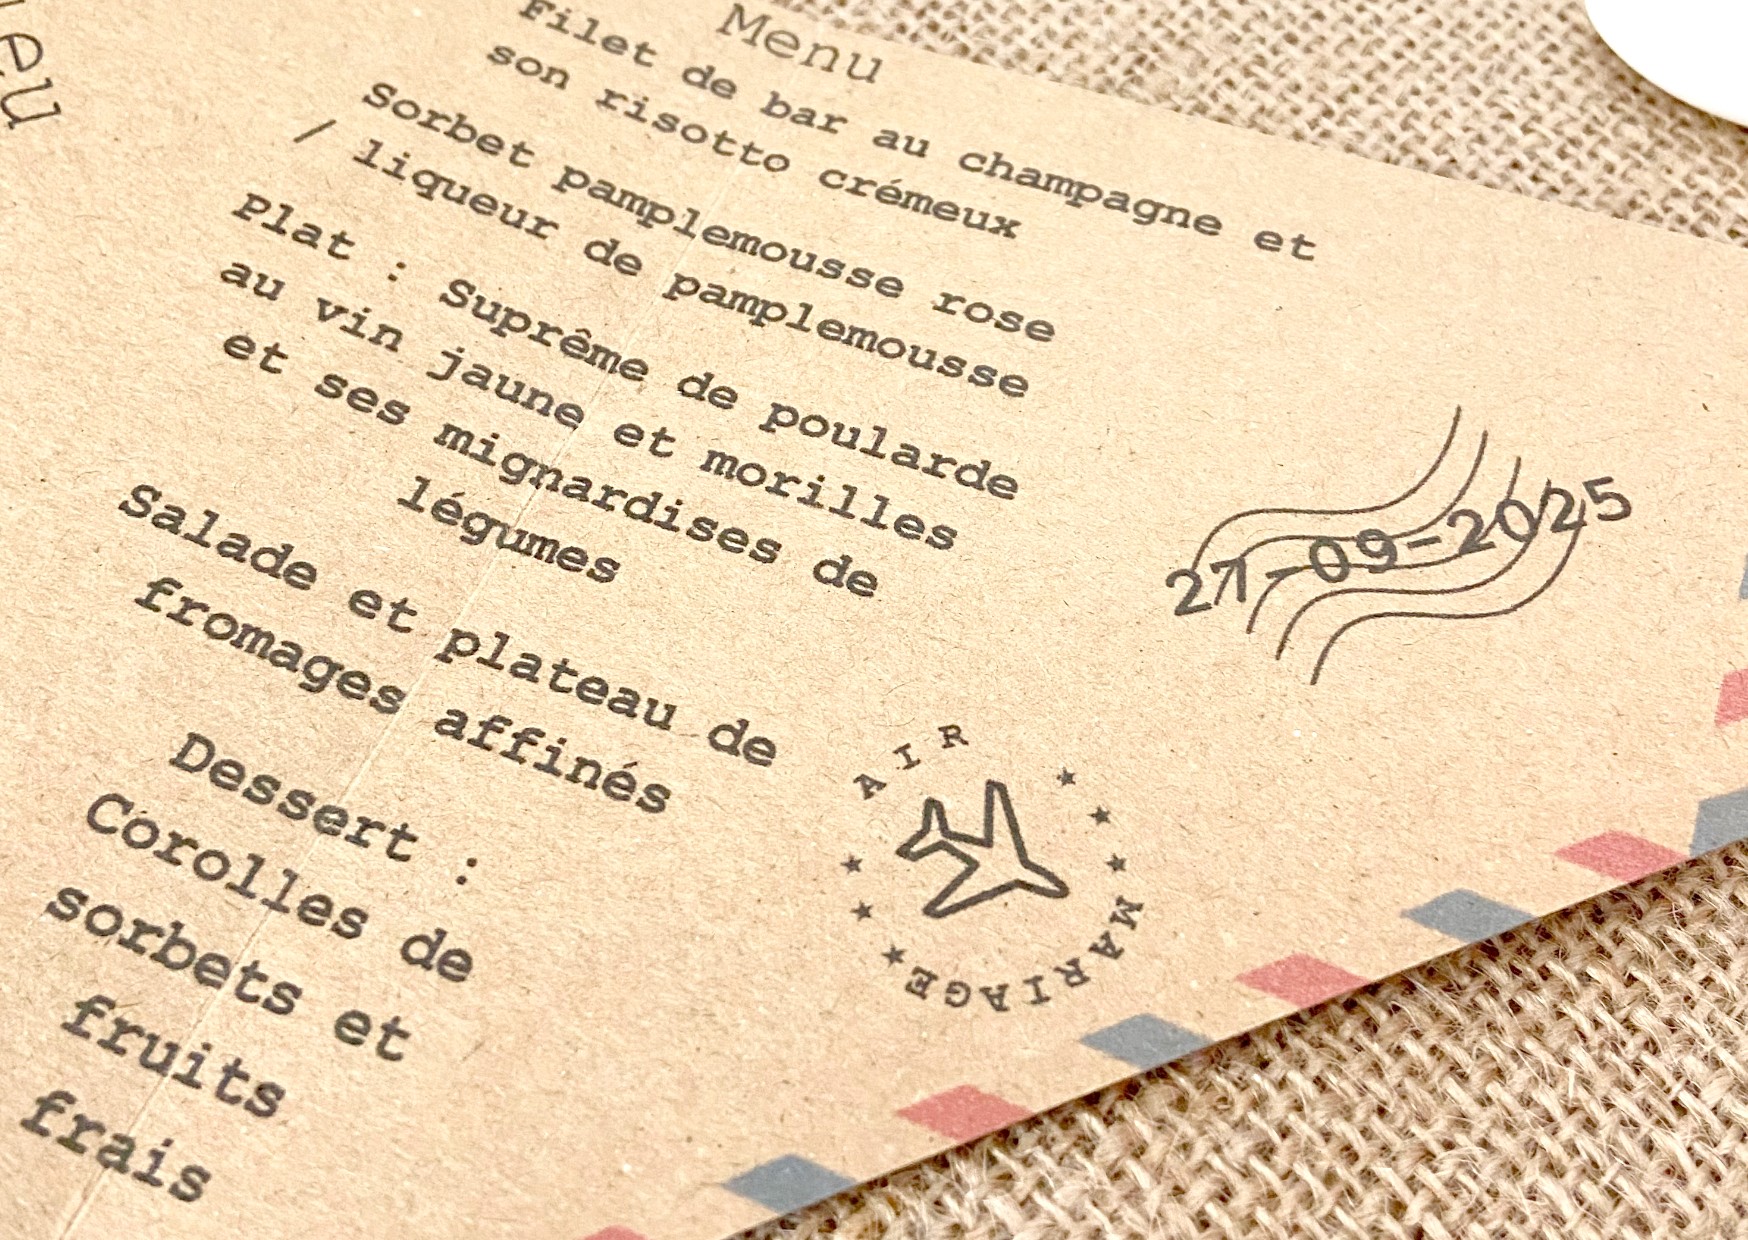 Menu
Filet de bar au champagne et
son risotto crémeux
Sorbet pamplemousse rose
/ liqueur de pamplemousse
Plat : Suprême de poularde
au vin jaune et morilles
et ses mignardises de
légumes
Salade et plateau de
fromages affinés
Dessert :
Corolles de
sorbets et
fruits
frais
27-09-2025
AIR
MARIAGE